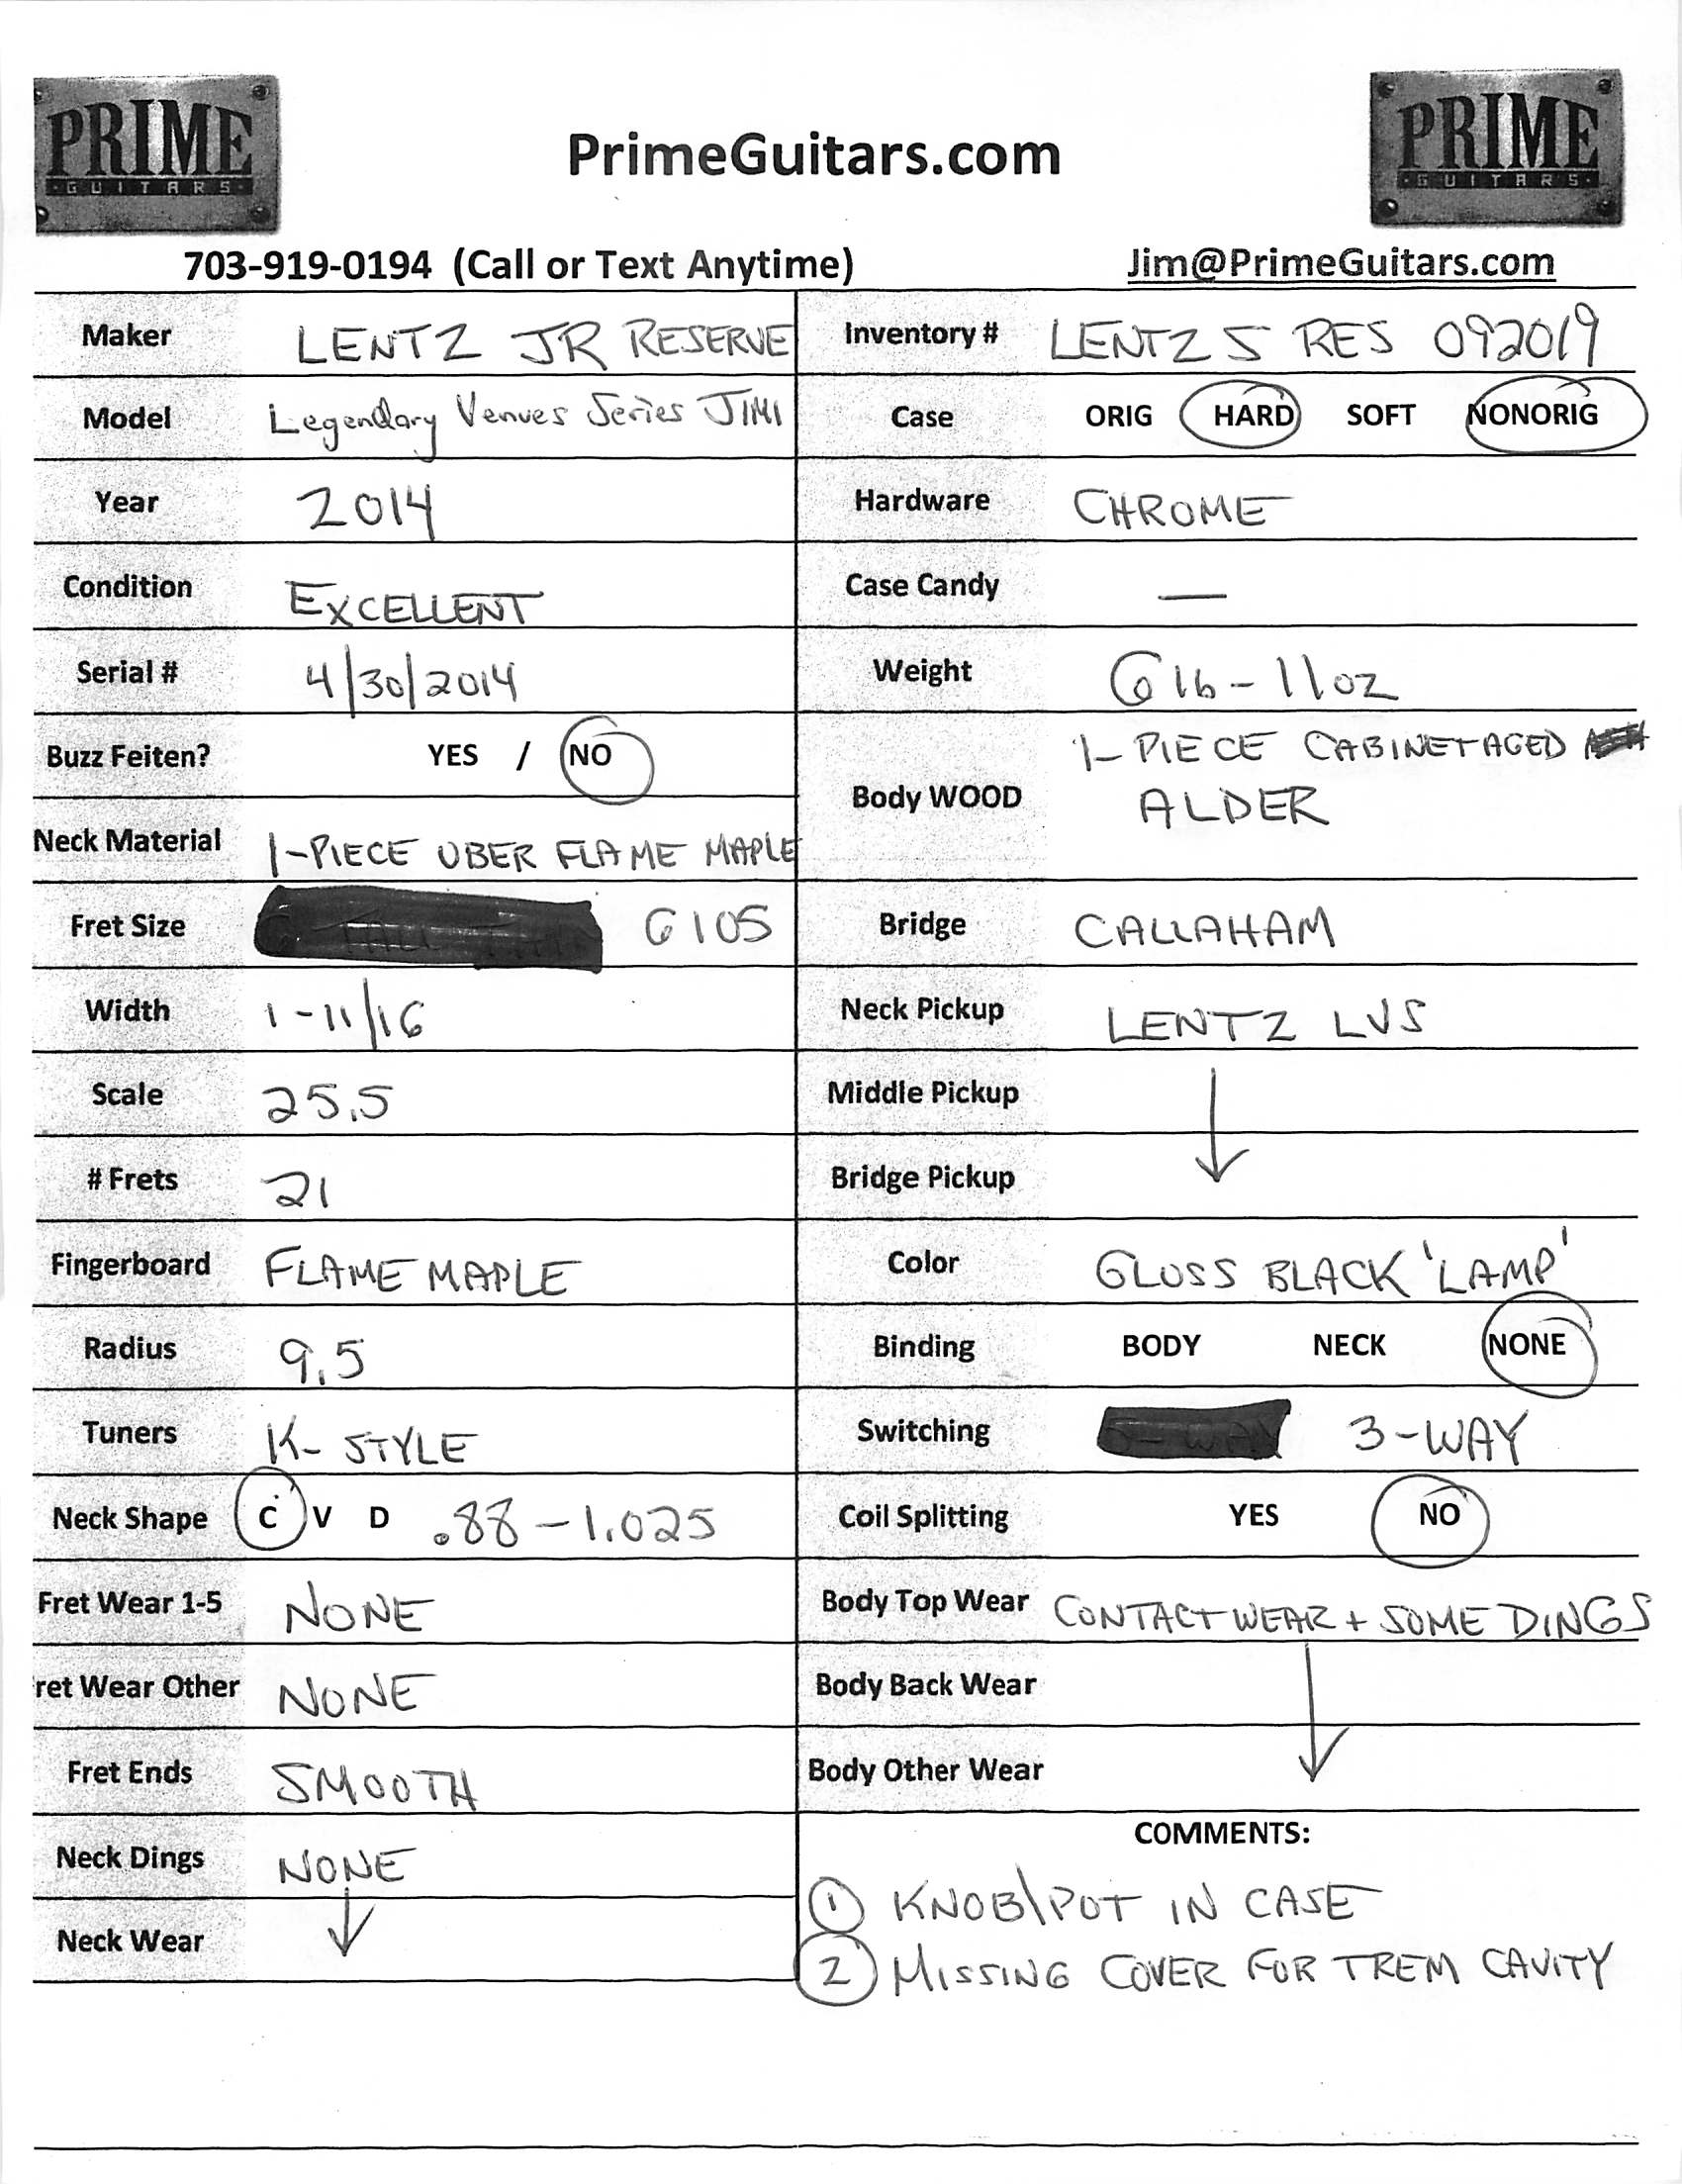 PRIME
GUITARS
PrimeGuitars.com
PRIME
GUITARS
703-919-0194 (Call or Text Anytime)
Jim@PrimeGuitars.com
Maker LENTZ JR RESERVE
Model Legendary Venues Series JIMI
Year 2014
Condition EXCELLENT
Serial # 4/30/2014
Buzz Feiten? YES / NO
Neck Material 1-PIECE UBER FLAME MAPLE
Fret Size 6105
Width 1-11/16
Scale 25.5
# Frets 21
Fingerboard FLAME MAPLE
Radius 9.5
Tuners K-STYLE
Neck Shape C V D .88-1.025
Fret Wear 1-5 NONE
ret Wear Other NONE
Fret Ends SMOOTH
Neck Dings NONE
Neck Wear
Inventory # LENTZ S RES 092019
Case ORIG HARD SOFT NONORIG
Hardware CHROME
Case Candy —
Weight 6 lb - 11 oz
Body WOOD 1-PIECE CABINET AGED
ALDER
Bridge CALLAHAM
Neck Pickup LENTZ LVS
Middle Pickup
Bridge Pickup
Color GLOSS BLACK 'LAMP'
Binding BODY NECK NONE
Switching 3-WAY
Coil Splitting YES NO
Body Top Wear CONTACT WEAR + SOME DINGS
Body Back Wear
Body Other Wear
COMMENTS:
1 KNOB\POT IN CASE
2 MISSING COVER FOR TREM CAVITY